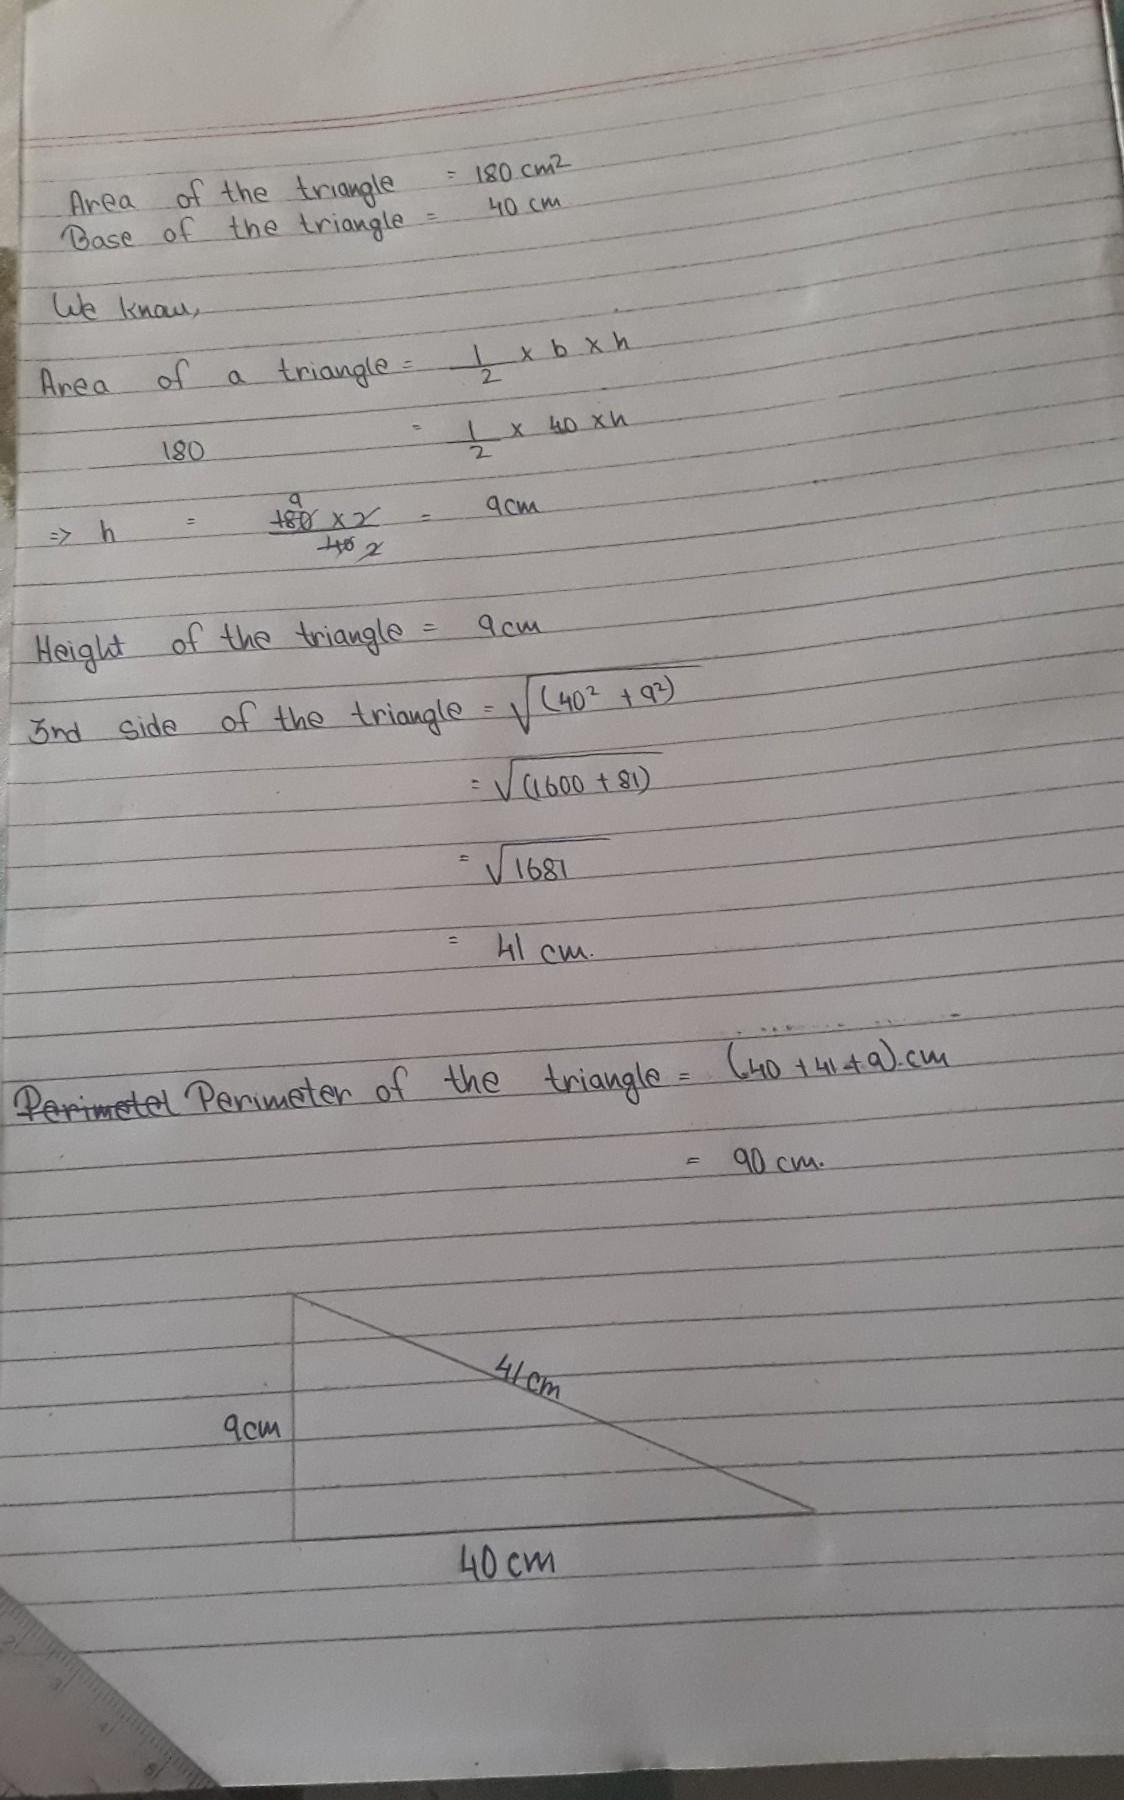 Area of the triangle = 180 cm²
Base of the triangle = 40 cm
We know,
Area of a triangle = 1/2 × b × h
180 = 1/2 × 40 × h
⇒ h = 9 180 × 2 / 40 2 = 9cm
Height of the triangle = 9cm
3rd side of the triangle = √(40² + 9²)
= √(1600 + 81)
= √1681
= 41 cm.
Perimetel Perimeter of the triangle = (40 + 41 + 9).cm
= 90 cm.
41cm
9cm
40 cm
2
3
4
5